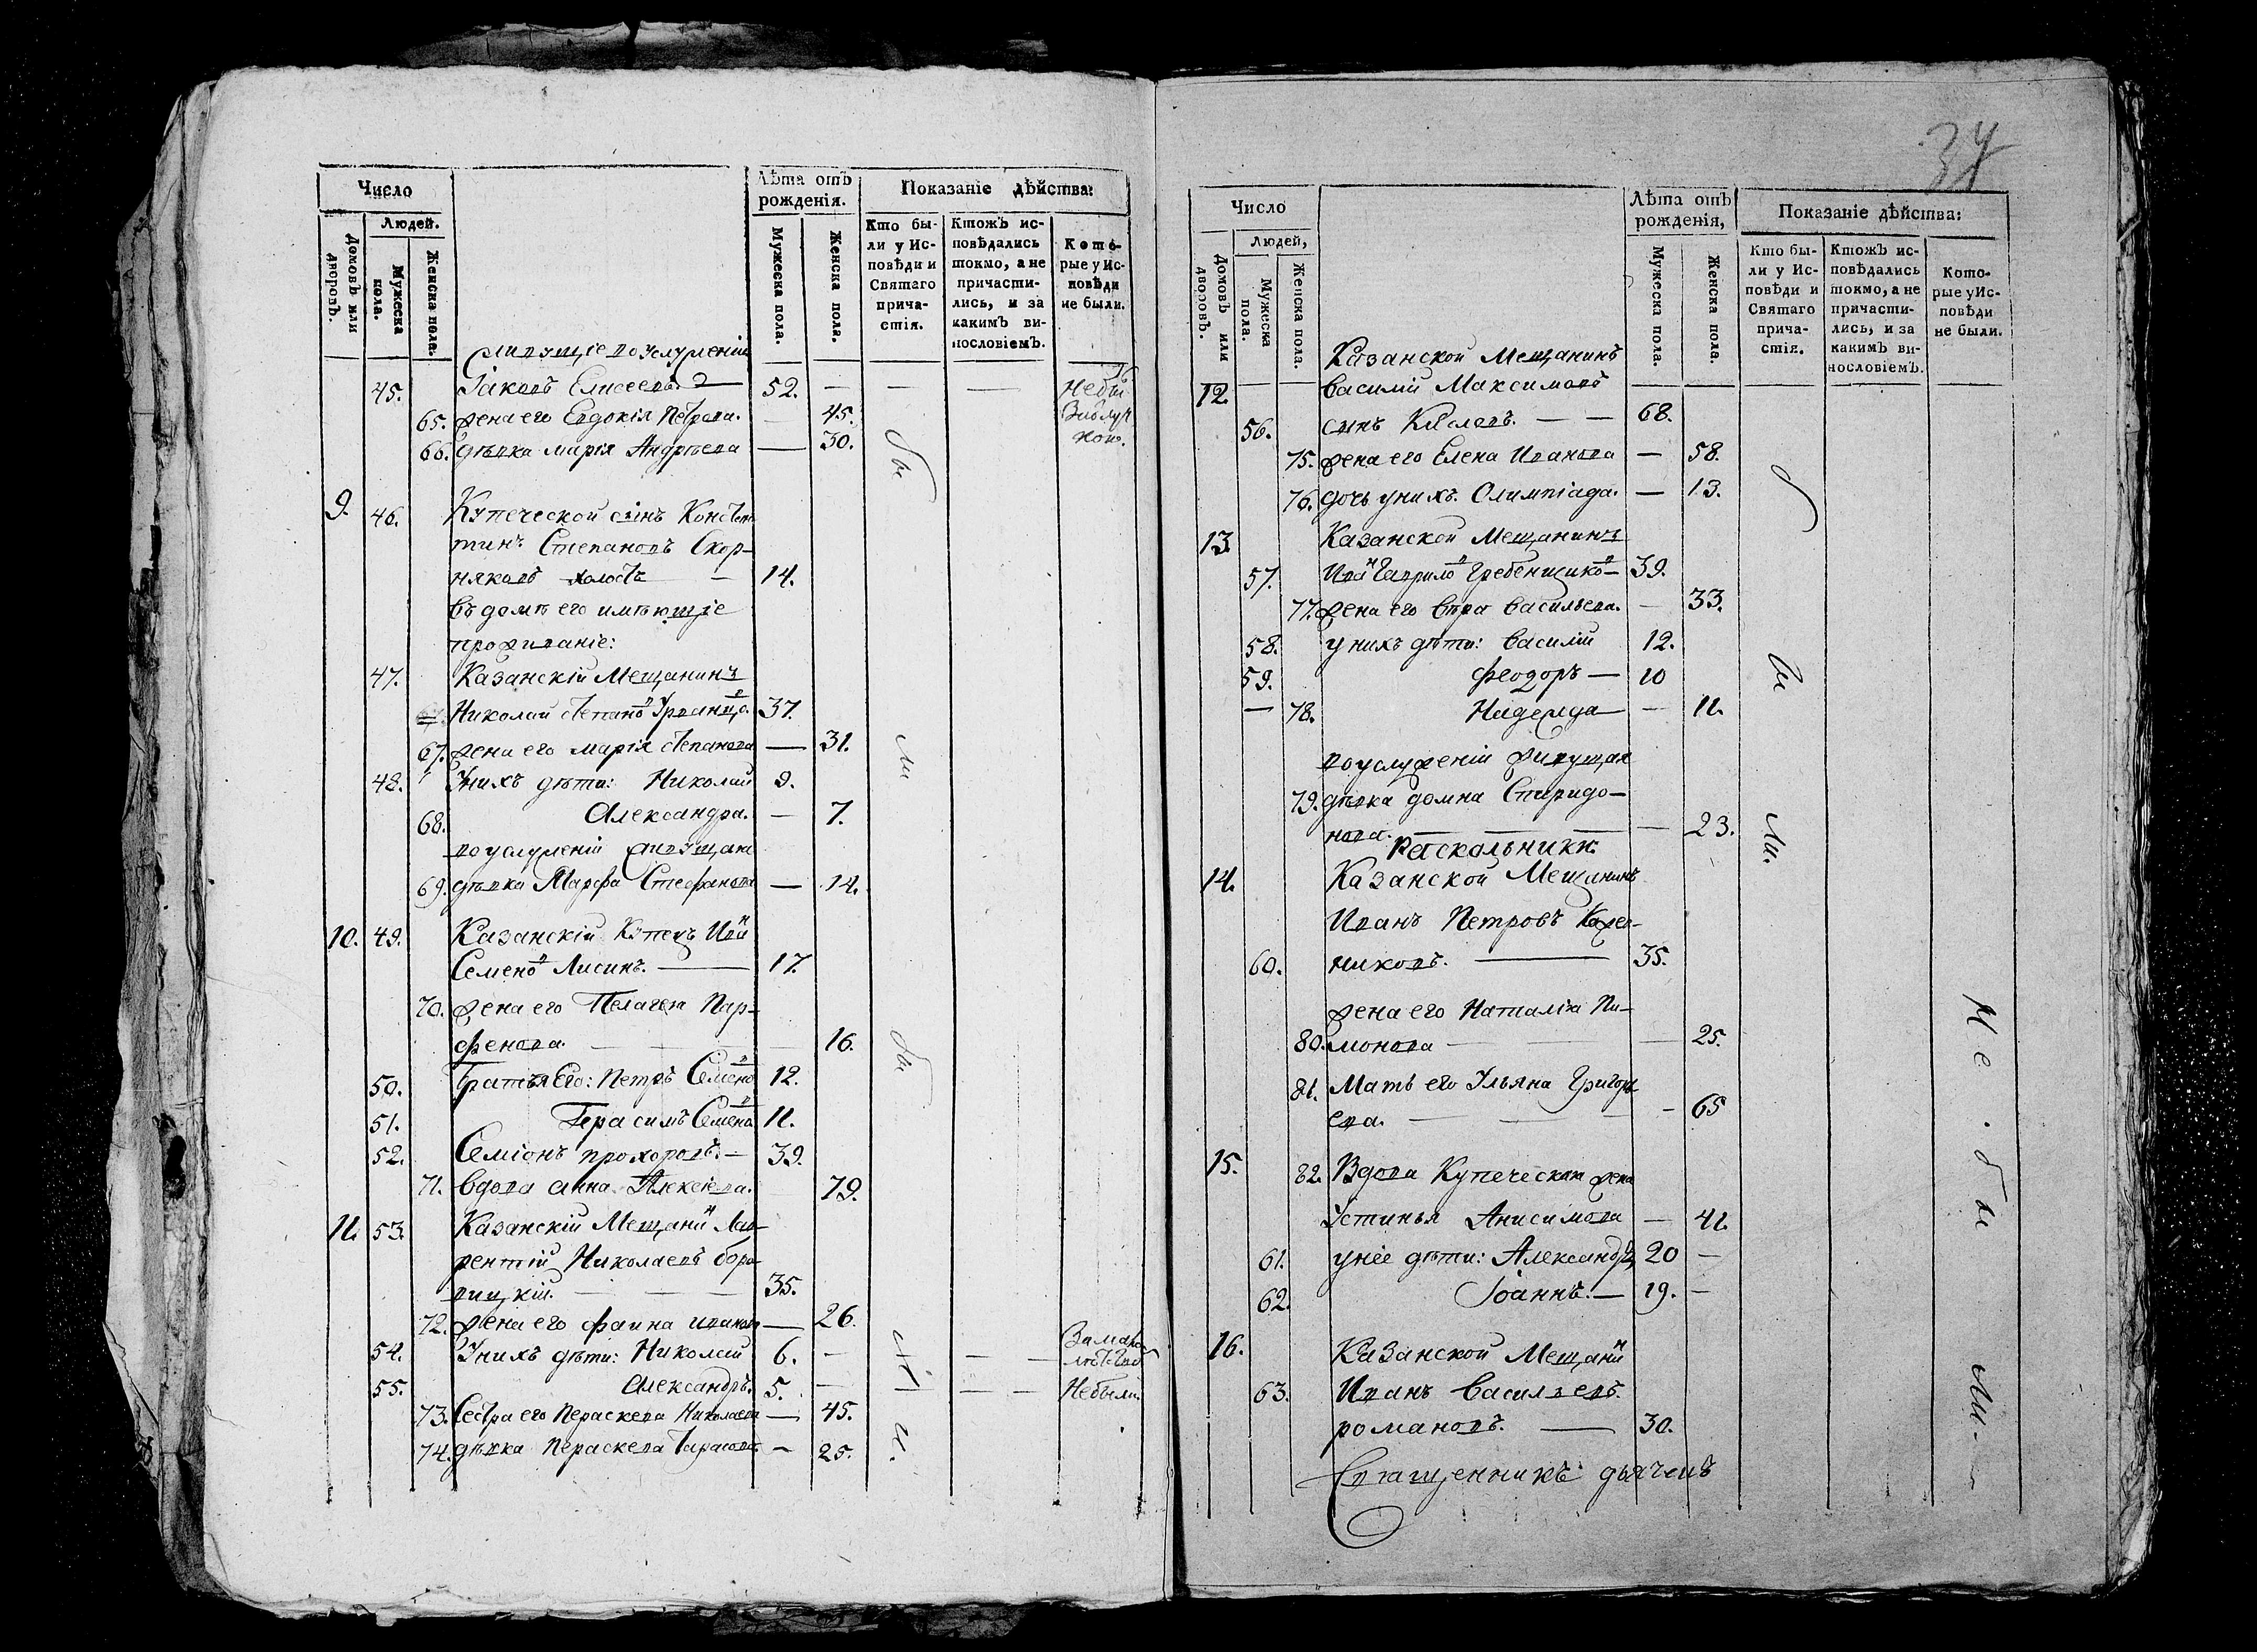 Число
Людей.
Домовъ или дворовъ.
Мужеска пола.
Женска пола.
Лѣта отъ рожденія.
Мужеска пола.
Женска пола.
Показаніе дѣйства:
Кто были у Исповѣди и Святаго причастія.
Ктожъ исповѣдались токмо, а не причастились, и за какимъ винословіемъ.
Которые у Исповѣди не были.
живущіе во услуженіи
45. Іаковъ Елисеевъ 52. — — — Небы
65. жена его Евдокія Петрова. — 45.
66. дѣвка марія Андрѣева — 30.
бы
9. 46. Купеческой сынъ Конста
тинъ Степановъ Скор-
няковъ холостъ — 14.
въ домѣ его имѣющіе
прожиданіе:
47. Казанскій Мещанинъ
Николай степано 37.
67. жена его марія степанова — 31.
48. Унихъ дѣти: Николай 9.
68. Александра. — 7.
во услуженіи живущая
69. дѣвка Марфа Стефанова — 14.
ли
10. 49. Казанскій Купецъ Ива н
Семено в Лисинъ. — 17.
70. жена его Пелагея Пар-
фенова. — 16.
50. братья Его: Петръ Семено в 12.
51. Герасимъ Семено в 11.
52. Семіонъ прохоровъ. — 39.
71. вдова анна Алексіева. 79.
бы
11. 53. Казанскій Мещани н Лав-
рентій Николаевъ бора
вицкій. — 35.
72. жена его фаина иванов — 26.
54. Унихъ дѣти: Николай 6. — — —
55. Александръ. 5. — — — Небыли.
73. Сестра его Пераскева Николаева — 45.
74. дѣвка Пераскева Тарасова — 25.
34
Число
Людей,
Домовъ или дворовъ.
Мужеска пола.
Женска пола.
Лѣта отъ рожденія,
Мужеска пола.
Женска пола.
Показаніе дѣйства:
Кто были у Исповѣди и Святаго причастія.
Ктожъ исповѣдались токмо, а не причастились, и за какимъ винословіемъ.
Которые у Исповѣди не были.
Казанской Мещанинъ
12. василій Максимовъ
56. сынъ 68.
75. жена его Елена Иванова — 58.
76. дочь унихъ. Олимпіада. — 13.
13. Казанской Мещанинъ
57. Ива н Гаврило в Гребенщико в — 39.
77. жена его вѣра васильева. — 33.
58. унихъ дѣти: василій 12.
59. феодоръ — 10
— 78. Надежда — 11.
во услуженіи живущая
79. дѣвка домна Спиридо-
нова. — 23.
бы ли.
Раскольники:
14. Казанской Мещанинъ
Иванъ Петровъ Коже-
60. никовъ. — 35.
жена его Наталія Пи-
80. монова — 25.
81. Мать его Ульяна Григорь
ева. — 65
15. 82. Вдова Купеческая жена
Устинья Анисимова — 41.
61. унее дѣти: Александръ 20 —
62. Іоаннъ. — 19. —
16. Казанской Мещани н
63. Иванъ васильевъ
романовъ. — 30.
Не бы ли
Священникъ дьяченъ